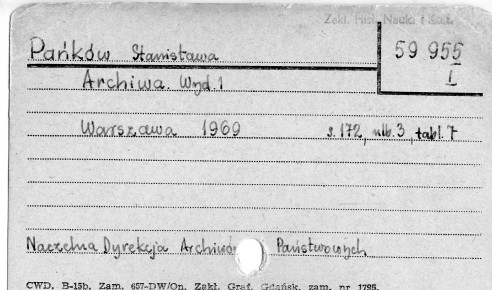 Zakł. Hist. Nauki i Tech.
Pańków Stanisława
59 955
I
Archiwa. Wyd. 1
Warszawa 1969 s. 172, nlb. 3, tabl. 7
Naczelna Dyrekcja Archiwów Państwowych
CWD. B-15b. Zam. 657-DW/On. Zakł. Graf. Gdańsk, zam. nr 1795.